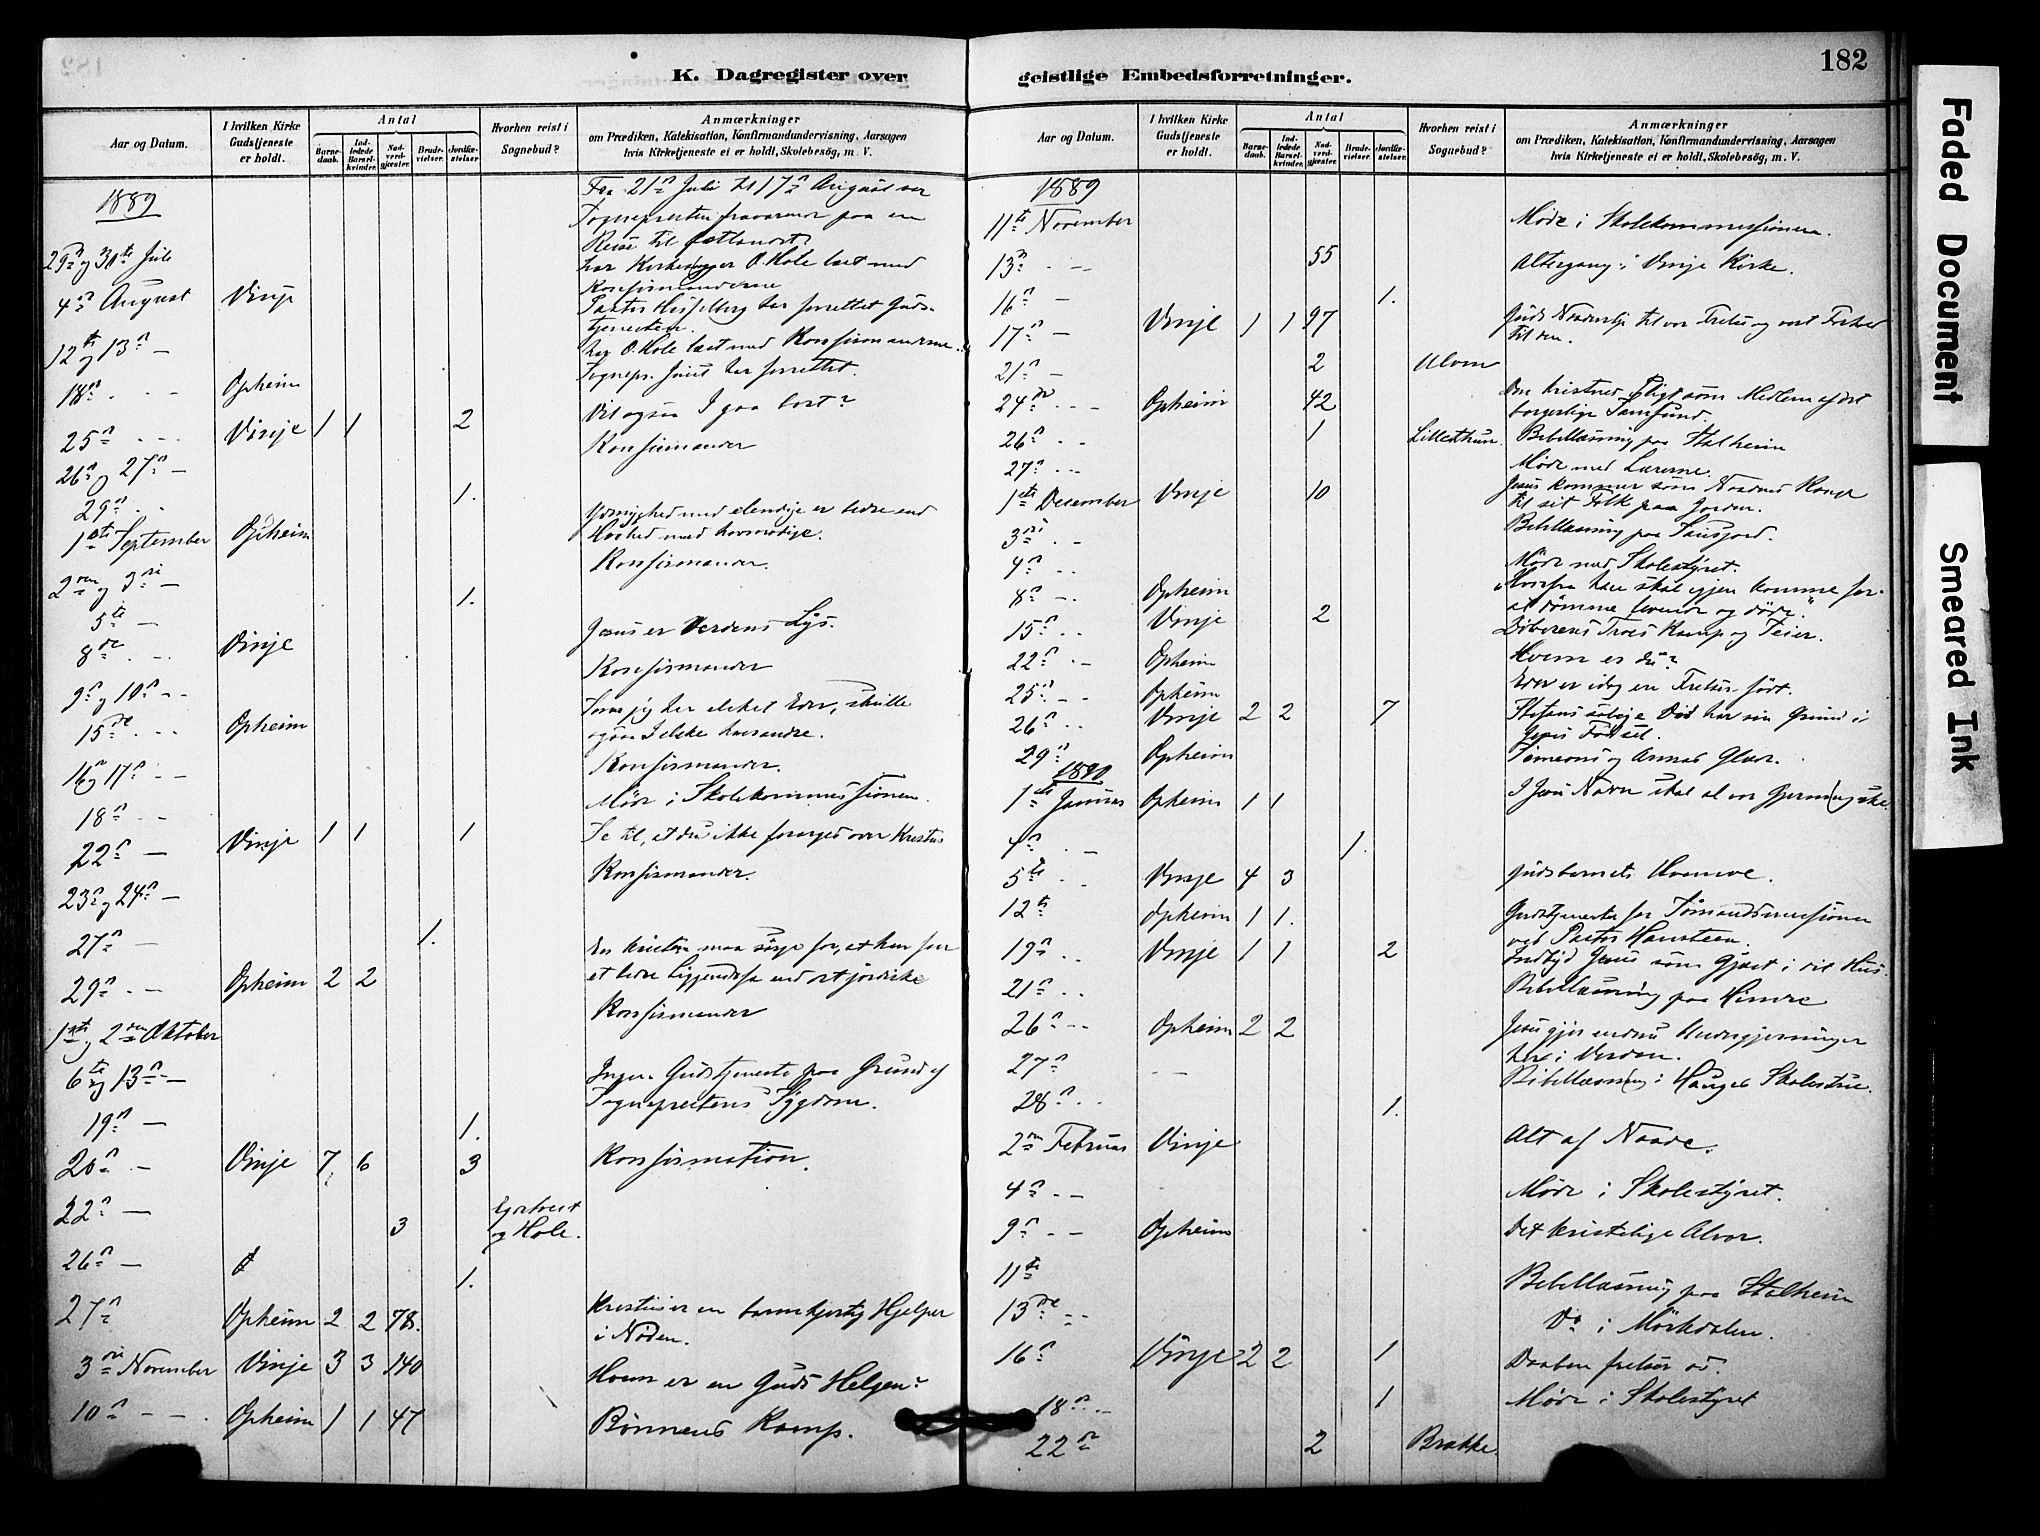 182
K. Dagregister over
Aar og Datum.
I hvilken Kirke Gudstjeneste er holdt.
Antal
Barne-daab.
Ind-ledede Barsel-kvinder.
Nad-verd-gjæster.
Brude-vielser.
Jordfæ-stelser.
Hvorhen reist i Sognebud?
Anmærkninger
om Prædiken, Katekisation, Konfirmandundervisning, Aarsagen
hvis Kirketjeneste ei er holdt, Skolebesøg, m. V.
1889
Fra 21de Juli til 17de August var
Sognepresten fraværende paa en
Reise til
29de og 31te Juli
har Kirkesanger O. Hole læst med
Konfirmanderne
4de August Vinje
Pastor Hesselberg har forrettet Guds-
tjenesten.
12te og 13de —
har O. Hole læst med Konfirmanderne.
18de Opheim
Sognepr. Juul har forrettet.
25de Vinje 1 1 2 Vil ogsaa I gaa bort?
26de og 27de — Konfirmander
29de 1.
1ste September Opheim Ydmyghed med elendige er bedre end
Hoihed med hovmodige.
2den og 3die — Konfirmander.
5te — 1.
8de Vinje Jesus er Verdens Lys.
9de og 10de Konfirmander
15de Opheim Som jeg har elsket Eder, skulle
ogsaa I elske hverandre.
16 og 17de Konfirmander.
18de Møde i Skolekommissionen.
22de — Vinje 1 1 1 Se til, at du ikke forarges over Kristus
23de og 24de — Konfirmander.
27de — 1.
29de Opheim 2 2 En kristen maa sørge for, at han faar
et bedre Liggendefæ end det jordiske
1ste og 2den Oktober Konfirmander
6te og 13de — Ingen Gudstjeneste paa Grund af
Sogneprestens Sygdom.
19de — 1.
20de — Vinje 7 6 3 Konfirmation.
22de — 3
og Hole.
26de — 1.
27de Opheim 2 2 78. Kristus er en barmhjertig Hjelper
i Nøden.
3die November Vinje 3 3 140 Hvem er en Guds Helgen?
10de Opheim 1 1 47 Bønnens Kamp.
geistlige Embedsforretninger.
Aar og Datum.
I hvilken Kirke Gudstjeneste er holdt.
Antal
Barne-daab.
Ind-ledede Barsel-kvinder.
Nad-verd-gjæster.
Brude-vielser.
Jordfæ-stelser.
Hvorhen reist i Sognebud?
Anmærkninger
om Prædiken, Katekisation, Konfirmandundervisning, Aarsagen
hvis Kirketjeneste ei er holdt, Skolebesøg, m. V.
1889
11te November Møde i Skolekommissionen.
13de 55 Altergang i Vinje Kirke.
16de — 1.
17de — Vinje 1 1 97 Guds til vor Frelse og vort
til den.
21de — 2
24de Opheim 42 Den kristnes Pligt som Medlem af det
borgerlige Samfund.
26de 1 Bibellæsning paa Stalheim
27de Møde med Lærerne.
1ste December Vinje 10 Jesus kommer som Naadens Konge
til sit Folk paa Jorden.
3die Bibellæsning paa
4de Møde med Skolestyret.
8de Opheim "Hvorfra han skal igjen komme for
at dømme levende og døde."
15de Vinje 2 Døberens Troes Kamp og Seier.
22de Opheim Hvem er du?
25de Opheim Eder er idag en Frelser født.
26de Vinje 2 2 7 Stefans salige Død har sin Grund i
Jesus Fødsel.
29de Opheim Simeons og Annas Glæde.
1890
1ste Januar Opheim 1 1 I Jesu Navn skal al vor Gjerning ske.
4de — 1.
5te Vinje 4 3 Gudsbarnets
12te Opheim 1 1. Gudstjeneste for Sømandsmissionen
ved Pastor Hansteen.
19de Vinje 1 1 2 Indbyd Jesus som Gjest i dit Hus.
21de Bibellæsning paa
26de Opheim 2 2 Jesus gjør endnu Undergjerninger
her i Verden.
27de — Bibellæsning i Skolestue.
28de 1.
2den Februar Vinje Alt af Naade.
4de Møde i Skolestyret.
9de Opheim Det kristelige Alvor.
11te Bibellæsning paa Stalheim
13de Do i Mørkdalen.
16de Vinje 2 2 1 Daaben frelser os.
18de 1 Møde i Skolestyret
22de 2 Brække.
Faded Document
Smeared Ink